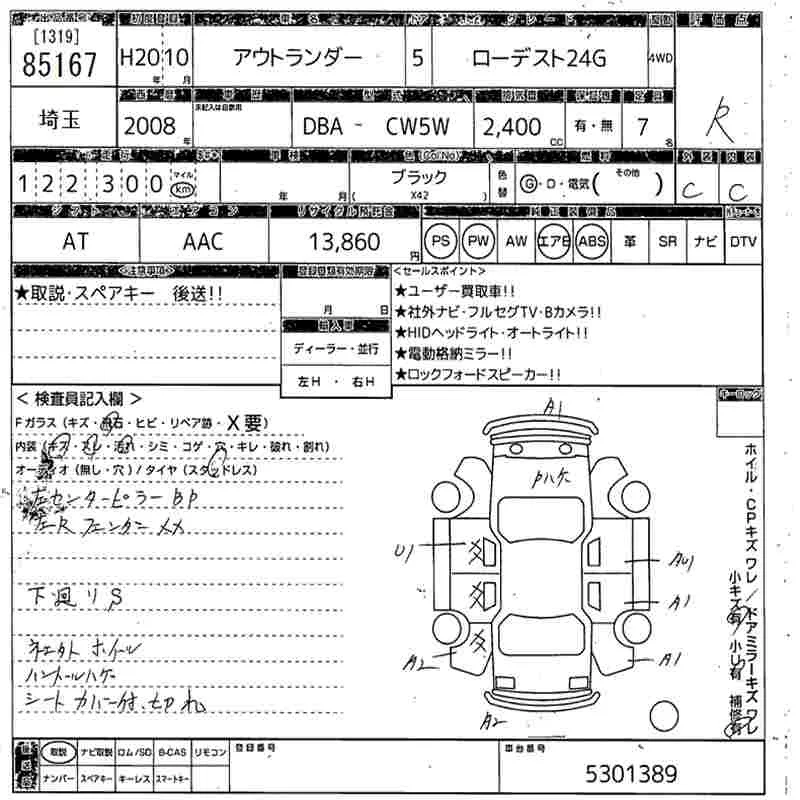 出品番号 初度登録 車名 ドア 形状 グレード 評価点
[1319]
85167 H20年 10月 アウトランダー 5 ローデスト24G 4WD
西暦 車歴 型式 排気量 保証書 定員
未記入は自家用
埼玉 2008年 DBA - CW5W 2,400CC 有・無 7名 R
走行 車検 色(CoNo) 燃料 外装 内装
122,300 マイル km 年 月 ブラック ( X42 ) 色替 G・D・電気( その他 ) C C
シフト エアコン リサイクル預託金 純正装備品
AT AAC 13,860円 PS PW AW エアB ABS 革 SR ナビ DTV
<注意事項> 登録書類有効期限 <セールスポイント>
★取説・スペアキー 後送!! ★ユーザー買取車!!
月 日 ★社外ナビ・フルセグTV・Bカメラ!!
輸入車 ★HIDヘッドライト・オートライト!!
ディーラー・並行 ★電動格納ミラー!!
左H ・ 右H ★ロックフォードスピーカー!!
< 検査員記入欄 > キーロック
Fガラス(キズ・飛石・ヒビ・リペア跡・X要)
内装(キズ・スレ・汚れ・シミ・コゲ・穴・キレ・破れ・割れ)
オーディオ(無し・穴)/タイヤ(スタッドレス)
左センターピラーBP
左Rフェンダー XX
下廻りS
ネエタト ホイール
ハンドルハゲ
シートカバー付、切れ
A1
Pハゲ
U1 XX AU1
XX A1
A2 XX A1
A2
ホイル・CPキズワレ/ドアミラーキズワレ
小キズ有/小U有 補修有
取説 ナビ取説 ロム/SD B-CAS リモコン 登録番号 車台番号
ナンバー スペアキー キーレス スマートキー 5301389